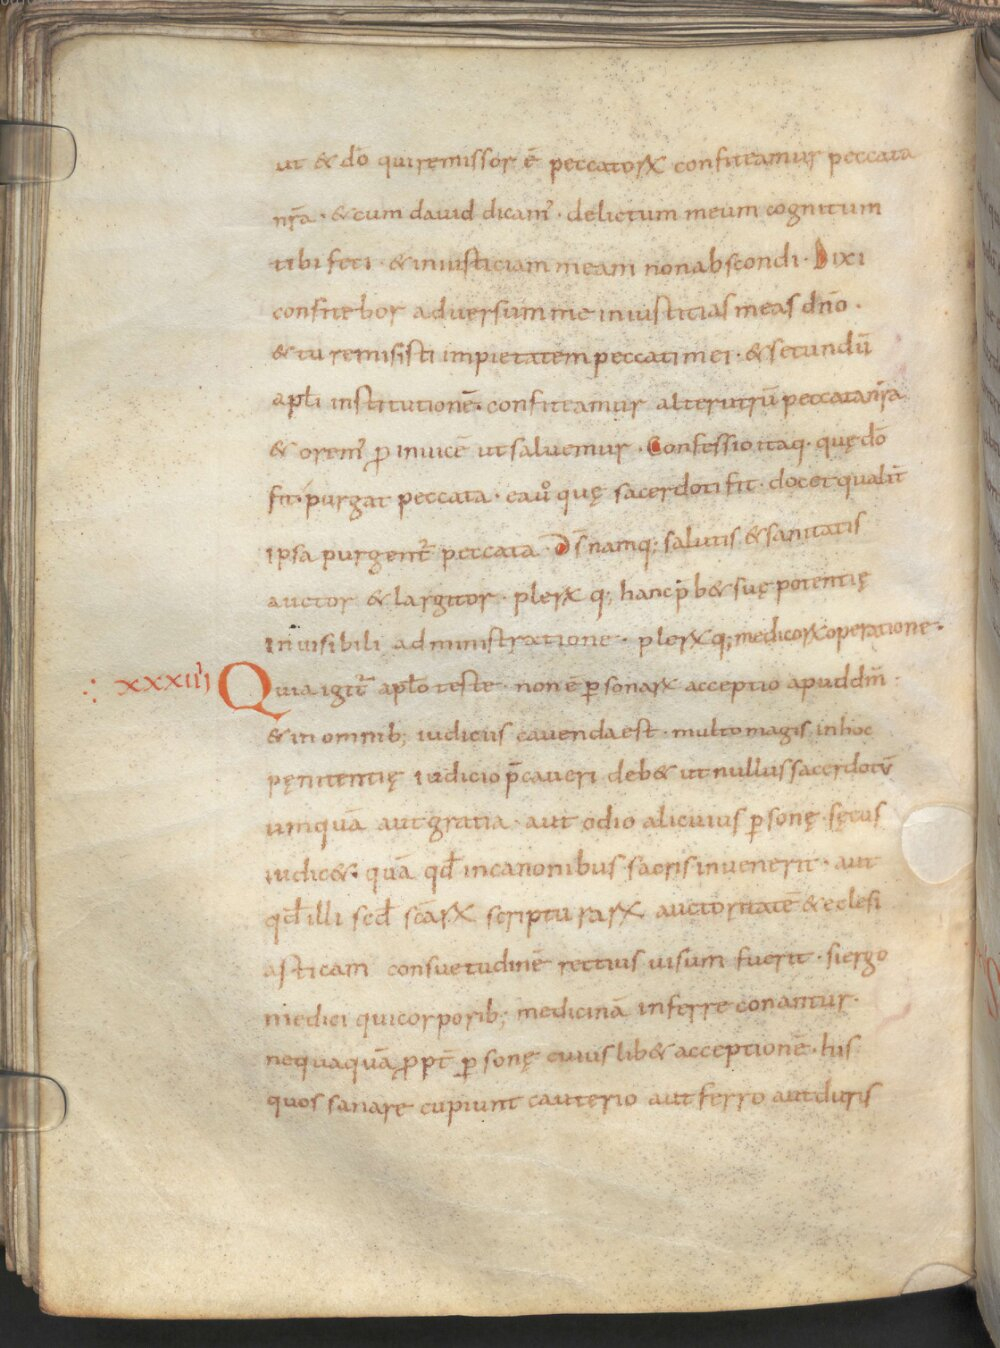 ut & dō qui remissor ē peccatorꝝ confiteamur peccata
nr̄a · & cum dauid dicam᾽ · delictum meum cognitum
tibi feci · & iniusticiam meam non abscondi · Dixi
confitebor aduersum me iniusticias meas dn̄o ·
& tu remisisti impietatem peccati mei · & secundū
apl̄i institutionē · confiteamur alterutrū peccata nr̄a
& orem᾽ ꝓ inuicē ut saluemur · Confessio itaq· quę dō
fit · purgat peccata · ea uͦ quę sacerdoti fit · docet qualit̄
ipsa purgent᾽ peccata · Ds̄ namq; salutis & sanitatis
auctor & largitor · plerꝝ q; hanc p̄b& suę potentię
inuisibili administratione · plerꝝ q; medicorꝝ operatione ·
xxxiiii Quia igit᾽ apl̄o teste · non ē ꝑsonarꝝ acceptio apud dm̄ ·
& in omnib; iudiciis cauenda est · multo magis in hoc
pęnitentię iudicio p̄caueri deb& ut nullus sacerdotū
umquā aut gratia · aut odio alicuius ꝑsonę · sęcus
iudic& · quā qd̄ in canonibus sacris inuenerit · aut
qd̄ illi scd̄ sc̄arꝝ scripturarꝝ auctoritatē & eclesi
asticam consuetudinē rectius uisum fuerit · si ergo
medici qui corporib; medicinā inferre conantur ·
nequaquā ꝓpt̄ ꝑsonę cuiuslib& acceptionē · his
quos sanare cupiunt cauterio aut ferro aut duris